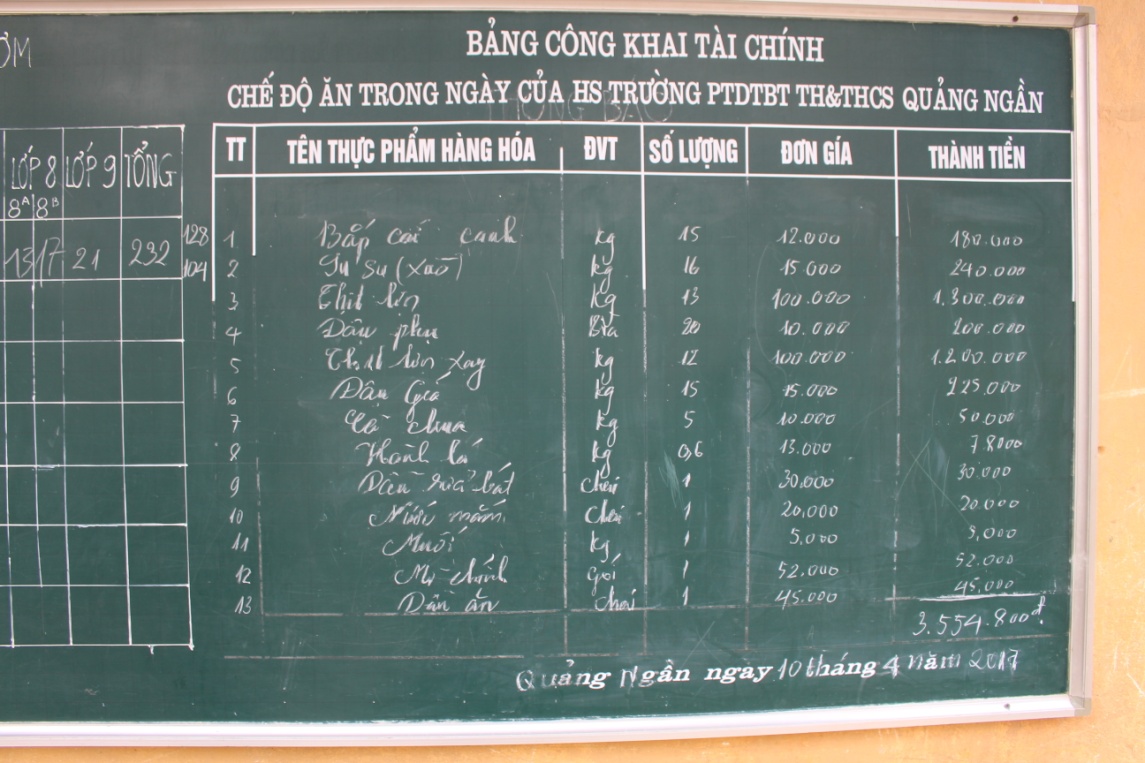 ƠM
BẢNG CÔNG KHAI TÀI CHÍNH
CHẾ ĐỘ ĂN TRONG NGÀY CỦA HS TRƯỜNG PTDTBT TH&THCS QUẢNG NGẦN
THÔNG BÁO
LỚP 8 LỚP 9 TỔNG
8A 8B
13 17 21 232
128
104
TT TÊN THỰC PHẨM HÀNG HÓA ĐVT SỐ LƯỢNG ĐƠN GÍA THÀNH TIỀN
1 Bắp cải canh kg 15 12.000 180.000
2 Su su (xào) kg 16 15.000 240.000
3 Thịt lợn kg 13 100.000 1.300.000
4 Đậu phụ Bìa 20 10.000 200.000
5 Thịt lợn xay kg 12 100.000 1.200.000
6 Đậu Giá kg 15 15.000 225.000
7 Cà chua kg 5 10.000 50.000
8 Hành lá kg 0,6 13.000 7.8000
9 Dầu rửa bát chai 1 30.000 30.000
10 Nước mắm chai 1 20,000 20.000
11 Muối kg 1 5,000 5,000
12 Mì chính gói 1 52.000 52.000
13 Dầu ăn chai 1 45.000 45.000
3.554.800đ
Quảng Ngần ngày 10 tháng 4 năm 2017